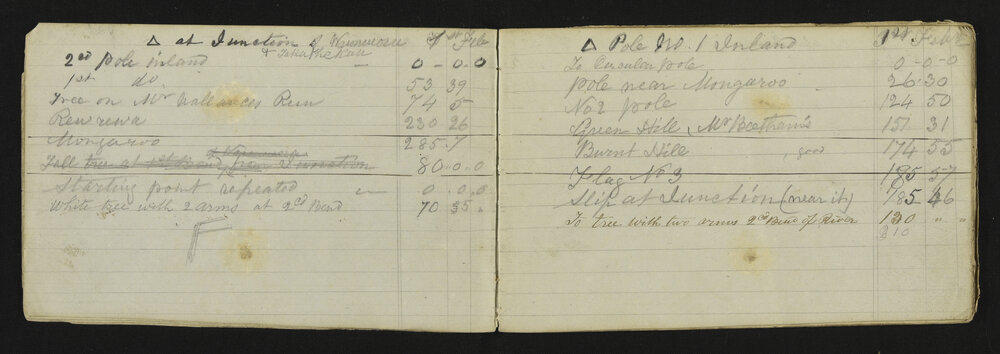 △ at Junction of 1st Feb
&
2nd Pole inland — 0-0.0
1st do 53 39
Tree on Mr Vallances Run 74 5
Rewrewa 230 26
Mongaroo 285.7
Tall tree at 1st Bend from Junction 80.0.0
Starting point repeated — 0.0.0
White tree with 2 arms at 2nd Bend 70 35.
△ Pole No. 1 Inland 3rd Feb
To Circular pole 0-0-0
Pole near Mongaroo 26.30
No 2 pole 124 50
Green Hill, Mr Beetham's 151 31
Burnt Hill, good 174 55
Flag No 3 185 57
Slip at Junction (near it) 185 46
To tree with two arms 2nd Bend of River 130 " "
210